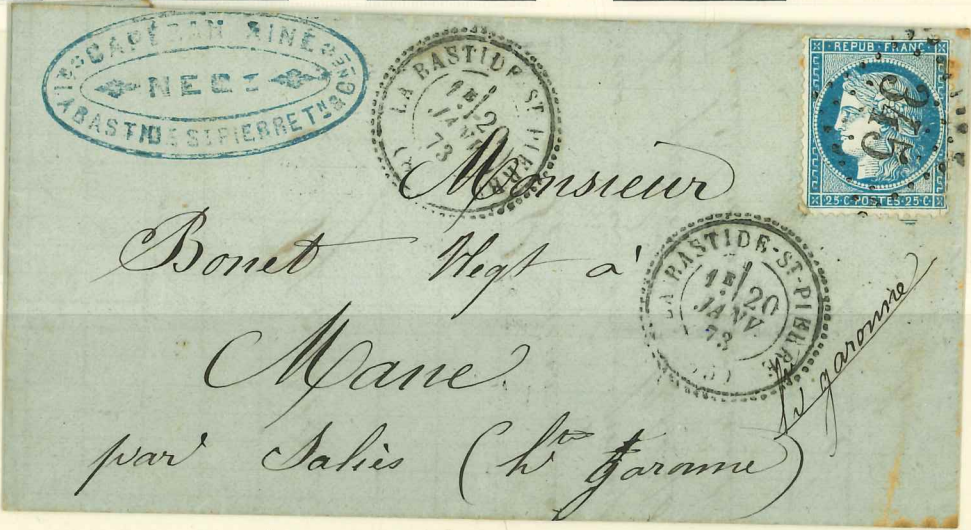 CAPÉRAN AINÉ
NEGT
LABASTIDE ST PIERRE TN & GNE
LA BASTIDE-ST-PIERRE
1E / 20
JANV.
73
REPUB. FRANC.
25 C. POSTES 25 C.
Monsieur
Bonet Negt à
LA BASTIDE-ST-PIERRE
1E / 20
JANV.
73
Mane
par Salies (hte Garonne)
garonne